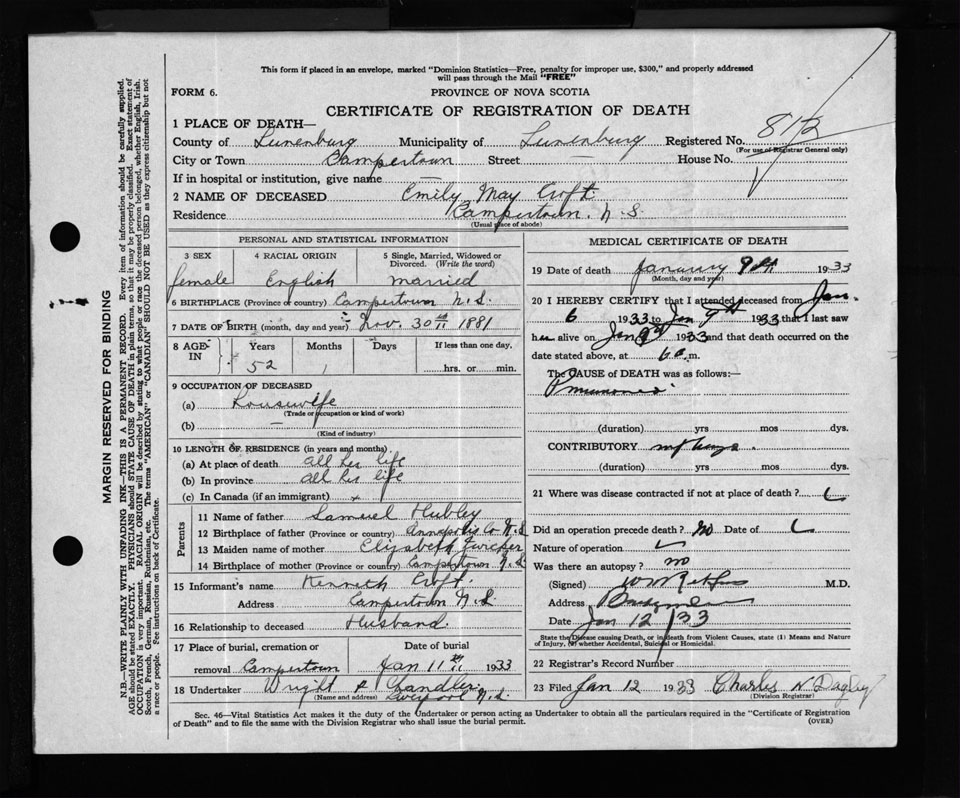 This form if placed in an envelope, marked "Dominion Statistics—Free, penalty for improper use, $300," and properly addressed
will pass through the Mail "FREE"
FORM 6.
PROVINCE OF NOVA SCOTIA
CERTIFICATE OF REGISTRATION OF DEATH
1 PLACE OF DEATH—
County of Lunenburg Municipality of Lunenburg Registered No. 812
(For use of Registrar General only)
City or Town Campertown Street — House No.
If in hospital or institution, give name —
2 NAME OF DECEASED Emily May Croft
Residence Campertown. N.S.
(Usual place of abode)
MARGIN RESERVED FOR BINDING
N.B.—WRITE PLAINLY WITH UNFADING INK—THIS IS A PERMANENT RECORD. Every item of information should be carefully supplied.
AGE should be stated EXACTLY. PHYSICIANS should STATE CAUSE OF DEATH in plain terms, so that it may be properly classified. Exact statement of
OCCUPATION is very important. RACIAL ORIGIN will be described by stating to what people or race the deceased person belonged, whether English, Irish,
Scotch, French, German, Russian, Ruthenian, etc. The terms "AMERICAN" or "CANADIAN" SHOULD NOT BE USED as they express citizenship but not
a race or people. Fee instructions on back of Certificate.
PERSONAL AND STATISTICAL INFORMATION
3 SEX
female
4 RACIAL ORIGIN
English
5 Single, Married, Widowed or
Divorced. (Write the word)
Married
6 BIRTHPLACE (Province or country) Campertown N.S.
7 DATE OF BIRTH (month, day and year) Nov. 30th 1881
8 AGE-
IN
Years
52
Months
1
Days
If less than one day,
hrs. or min.
9 OCCUPATION OF DECEASED
(a) Housewife
(Trade or occupation or kind of work)
(b) —
(Kind of industry)
10 LENGTH OF RESIDENCE (in years and months)
(a) At place of death all her life
(b) In province all her life
(c) In Canada (if an immigrant)
Parents
11 Name of father Samuel Hubley
12 Birthplace of father (Province or country) Annapolis Co N.S
13 Maiden name of mother Elizabeth
14 Birthplace of mother (Province or country) Campertown N.S
15 Informant's name Kenneth Croft.
Address Campertown N.S
16 Relationship to deceased Husband.
17 Place of burial, cremation or
removal Campertown
Date of burial
Jan 11th 1933
18 Undertaker Wright & Chandler
(Name and address) Liverpool N.S.
MEDICAL CERTIFICATE OF DEATH
19 Date of death January 9th 1933
(Month, day and year)
20 I HEREBY CERTIFY that I attended deceased from Jan.
6 1933 to Jan 9th 1933 that I last saw
her alive on Jan 1933 and that death occurred on the
date stated above, at 6 a.m.
The CAUSE of DEATH was as follows:—
Pneumonia
(duration) yrs mos dys.
CONTRIBUTORY
(duration) yrs mos dys.
21 Where was disease contracted if not at place of death?
Did an operation precede death? No Date of
Nature of operation
Was there an autopsy? no
(Signed) M.D.
Address
Date Jan 12/33
State the Disease causing Death, or in death from Violent Causes, state (1) Means and Nature
of Injury, (2) whether Accidental, Suicidal or Homicidal.
22 Registrar's Record Number
23 Filed Jan 12 1933 Charles N Dagley
(Division Registrar)
Sec. 46—Vital Statistics Act makes it the duty of the Undertaker or person acting as Undertaker to obtain all the particulars required in the "Certificate of Registration
of Death" and to file the same with the Division Registrar who shall issue the burial permit.
(OVER)